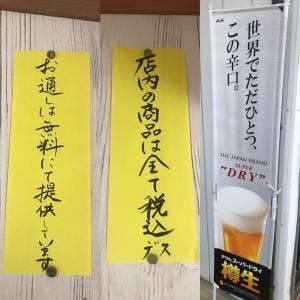 お通しは無料にて提供しています
店内の商品は全て税込デス
Asahi
世界でただひとつ、
この辛口。
THE JAPAN BRAND
SUPER
"DRY"
アサヒスーパードライ
樽生